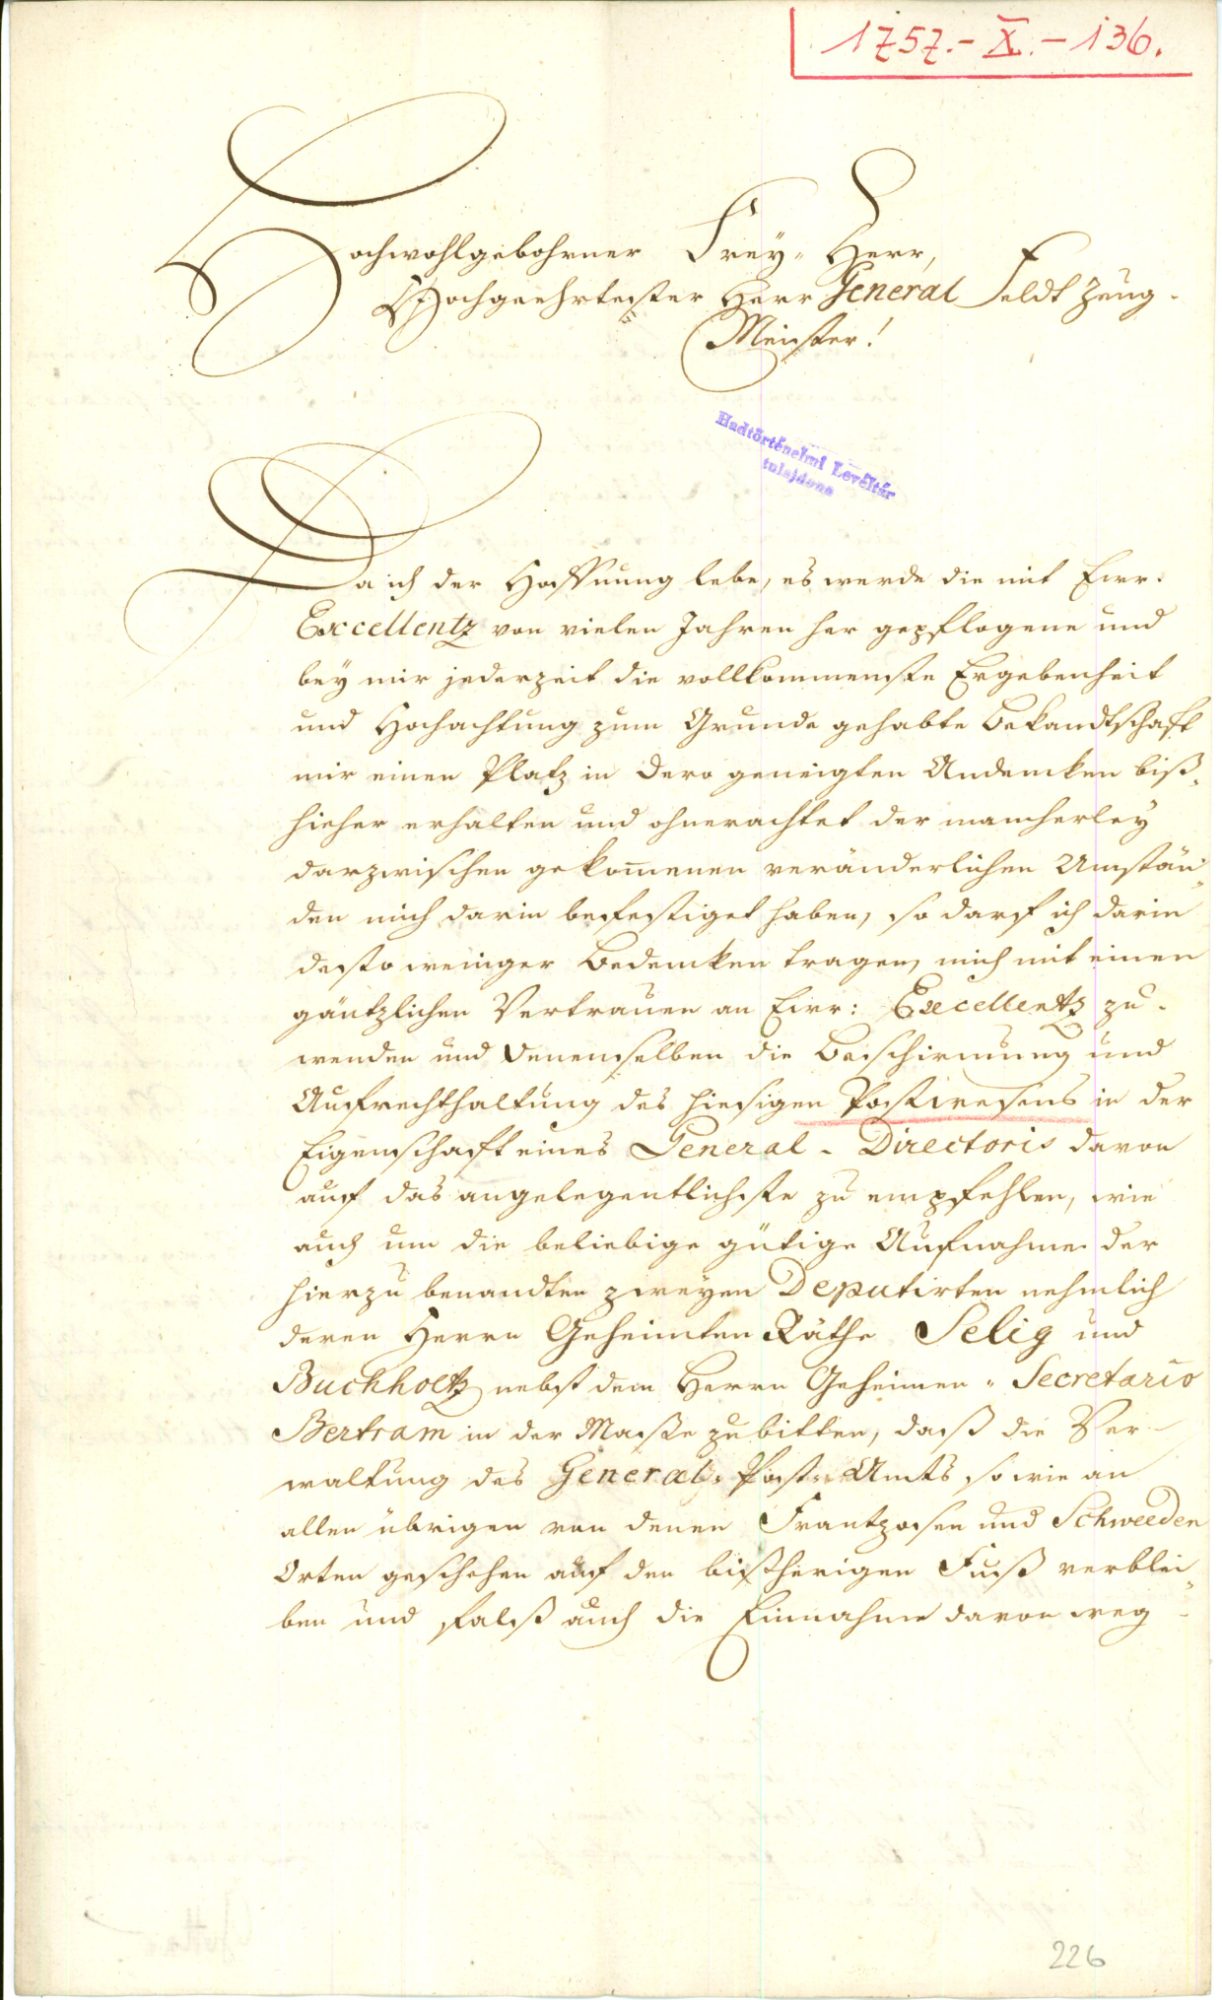 1757.-X.-136.
Hochwohlgebohrner Frey-Herr,
Hochgeehrtester Herr General Feldt Zeug-
Meister!
Hadtörténelmi Levéltár
tulajdona
Da ich der Hoffnung lebe, es werde die mit Eur.
Excellentz von vielen Jahren her gepflogene und
bey mir jederzeit die vollkommenste Ergebenheit
und Hochachtung zum Grunde gehabte Bekandtschaft
mir einen Platz in dero geneigten Andencken biß-
hieher erhalten und ohnerachtet der mancherley
darzwischen gekom̅enen veränderlichen Umstän-
den mich darin befestiget haben, so darf ich darin
desto weniger Bedencken tragen, mich mit einen
gäntzlichen Vertrauen an Eur: Excellentz zu-
wenden und Denenselben die Beschirmung und
Aufrechthaltung des hiesigen Postwesens in der
Eigenschaft eines General-Directoris davon
auf das angelegentlichste zu empfehlen, wie
auch um die beliebige gütige Aufnahme der
hierzu benandten zweyen Deputirten nehmlich
deren Herrn Geheimten Räthe Selig und
Buchholtz nebst dem Herrn Geheimen-Secretario
Bertram in der Maße zu bitten, daß die Ver-
waltung des General-Post-Amts so wie an
allen übrigen von denen Frantzosen und Schweeden
Orten geschehen auf den bißherigen Fuß verblei-
ben und falß auch die Einnahme davon weg-
226